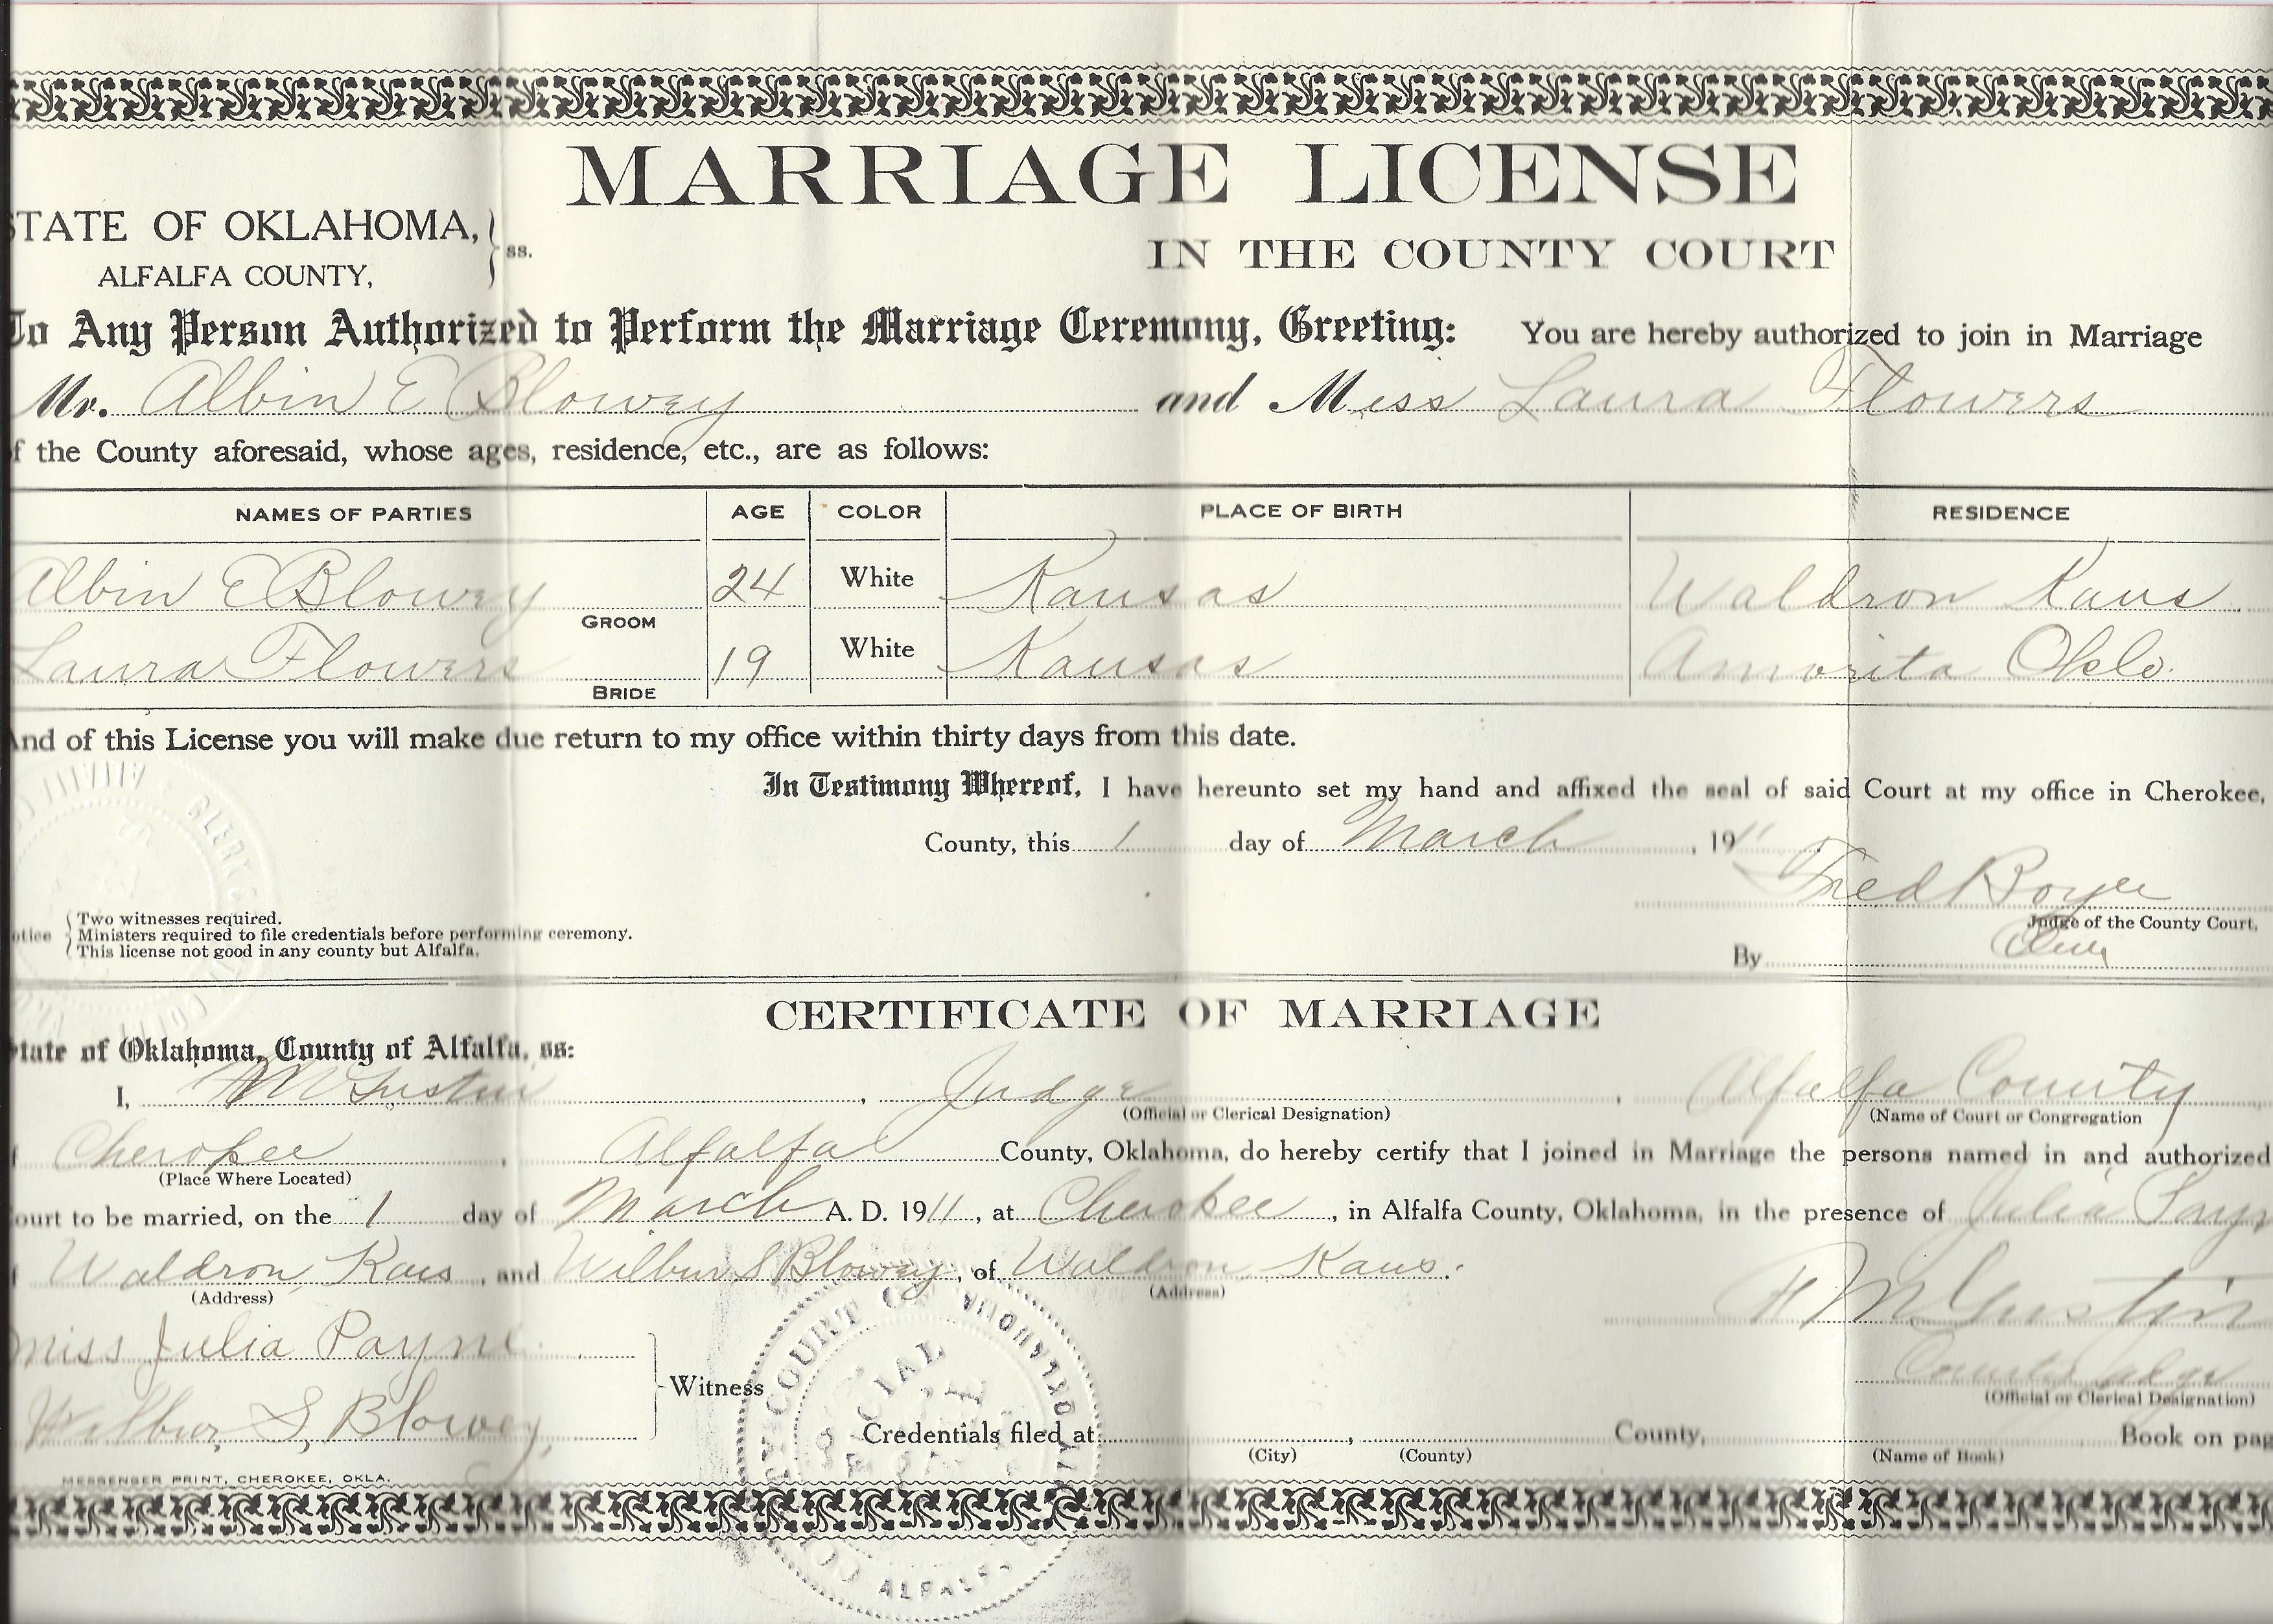 MARRIAGE LICENSE
STATE OF OKLAHOMA, } ss.
IN THE COUNTY COURT
ALFALFA COUNTY,
To Any Person Authorized to Perform the Marriage Ceremony, Greeting: You are hereby authorized to join in Marriage
Mr. Albin E Blowey and Miss Laura Flowers
of the County aforesaid, whose ages, residence, etc., are as follows:
NAMES OF PARTIES AGE COLOR PLACE OF BIRTH RESIDENCE
Albin E Blowey GROOM 24 White Kansas Waldron Kans
Laura Flowers BRIDE 19 White Kansas Amorita Okla.
And of this License you will make due return to my office within thirty days from this date.
In Testimony Whereof, I have hereunto set my hand and affixed the seal of said Court at my office in Cherokee,
County, this 1 day of March, 1911
Fred Boyce
Judge of the County Court,
By
Notice { Two witnesses required.
Ministers required to file credentials before performing ceremony.
This license not good in any county but Alfalfa.
CERTIFICATE OF MARRIAGE
State of Oklahoma, County of Alfalfa, ss:
I, , Judge, Alfalfa County
(Official or Clerical Designation) (Name of Court or Congregation
Cherokee, Alfalfa County, Oklahoma, do hereby certify that I joined in Marriage the persons named in and authorized
(Place Where Located)
Court to be married, on the 1 day of March A. D. 1911, at Cherokee, in Alfalfa County, Oklahoma, in the presence of Julia Payn
Waldron Kans, and Wilbur S Blowey, of Waldron Kans.
(Address) (Address)
Miss Julia Payne
Wilbur S, Blowey,
Witness
County Judge
(Official or Clerical Designation)
Credentials filed at , County, Book on pag
(City) (County) (Name of Book)
MESSENGER PRINT, CHEROKEE, OKLA.
COURT OF OKLAHOMA
ALFALFA